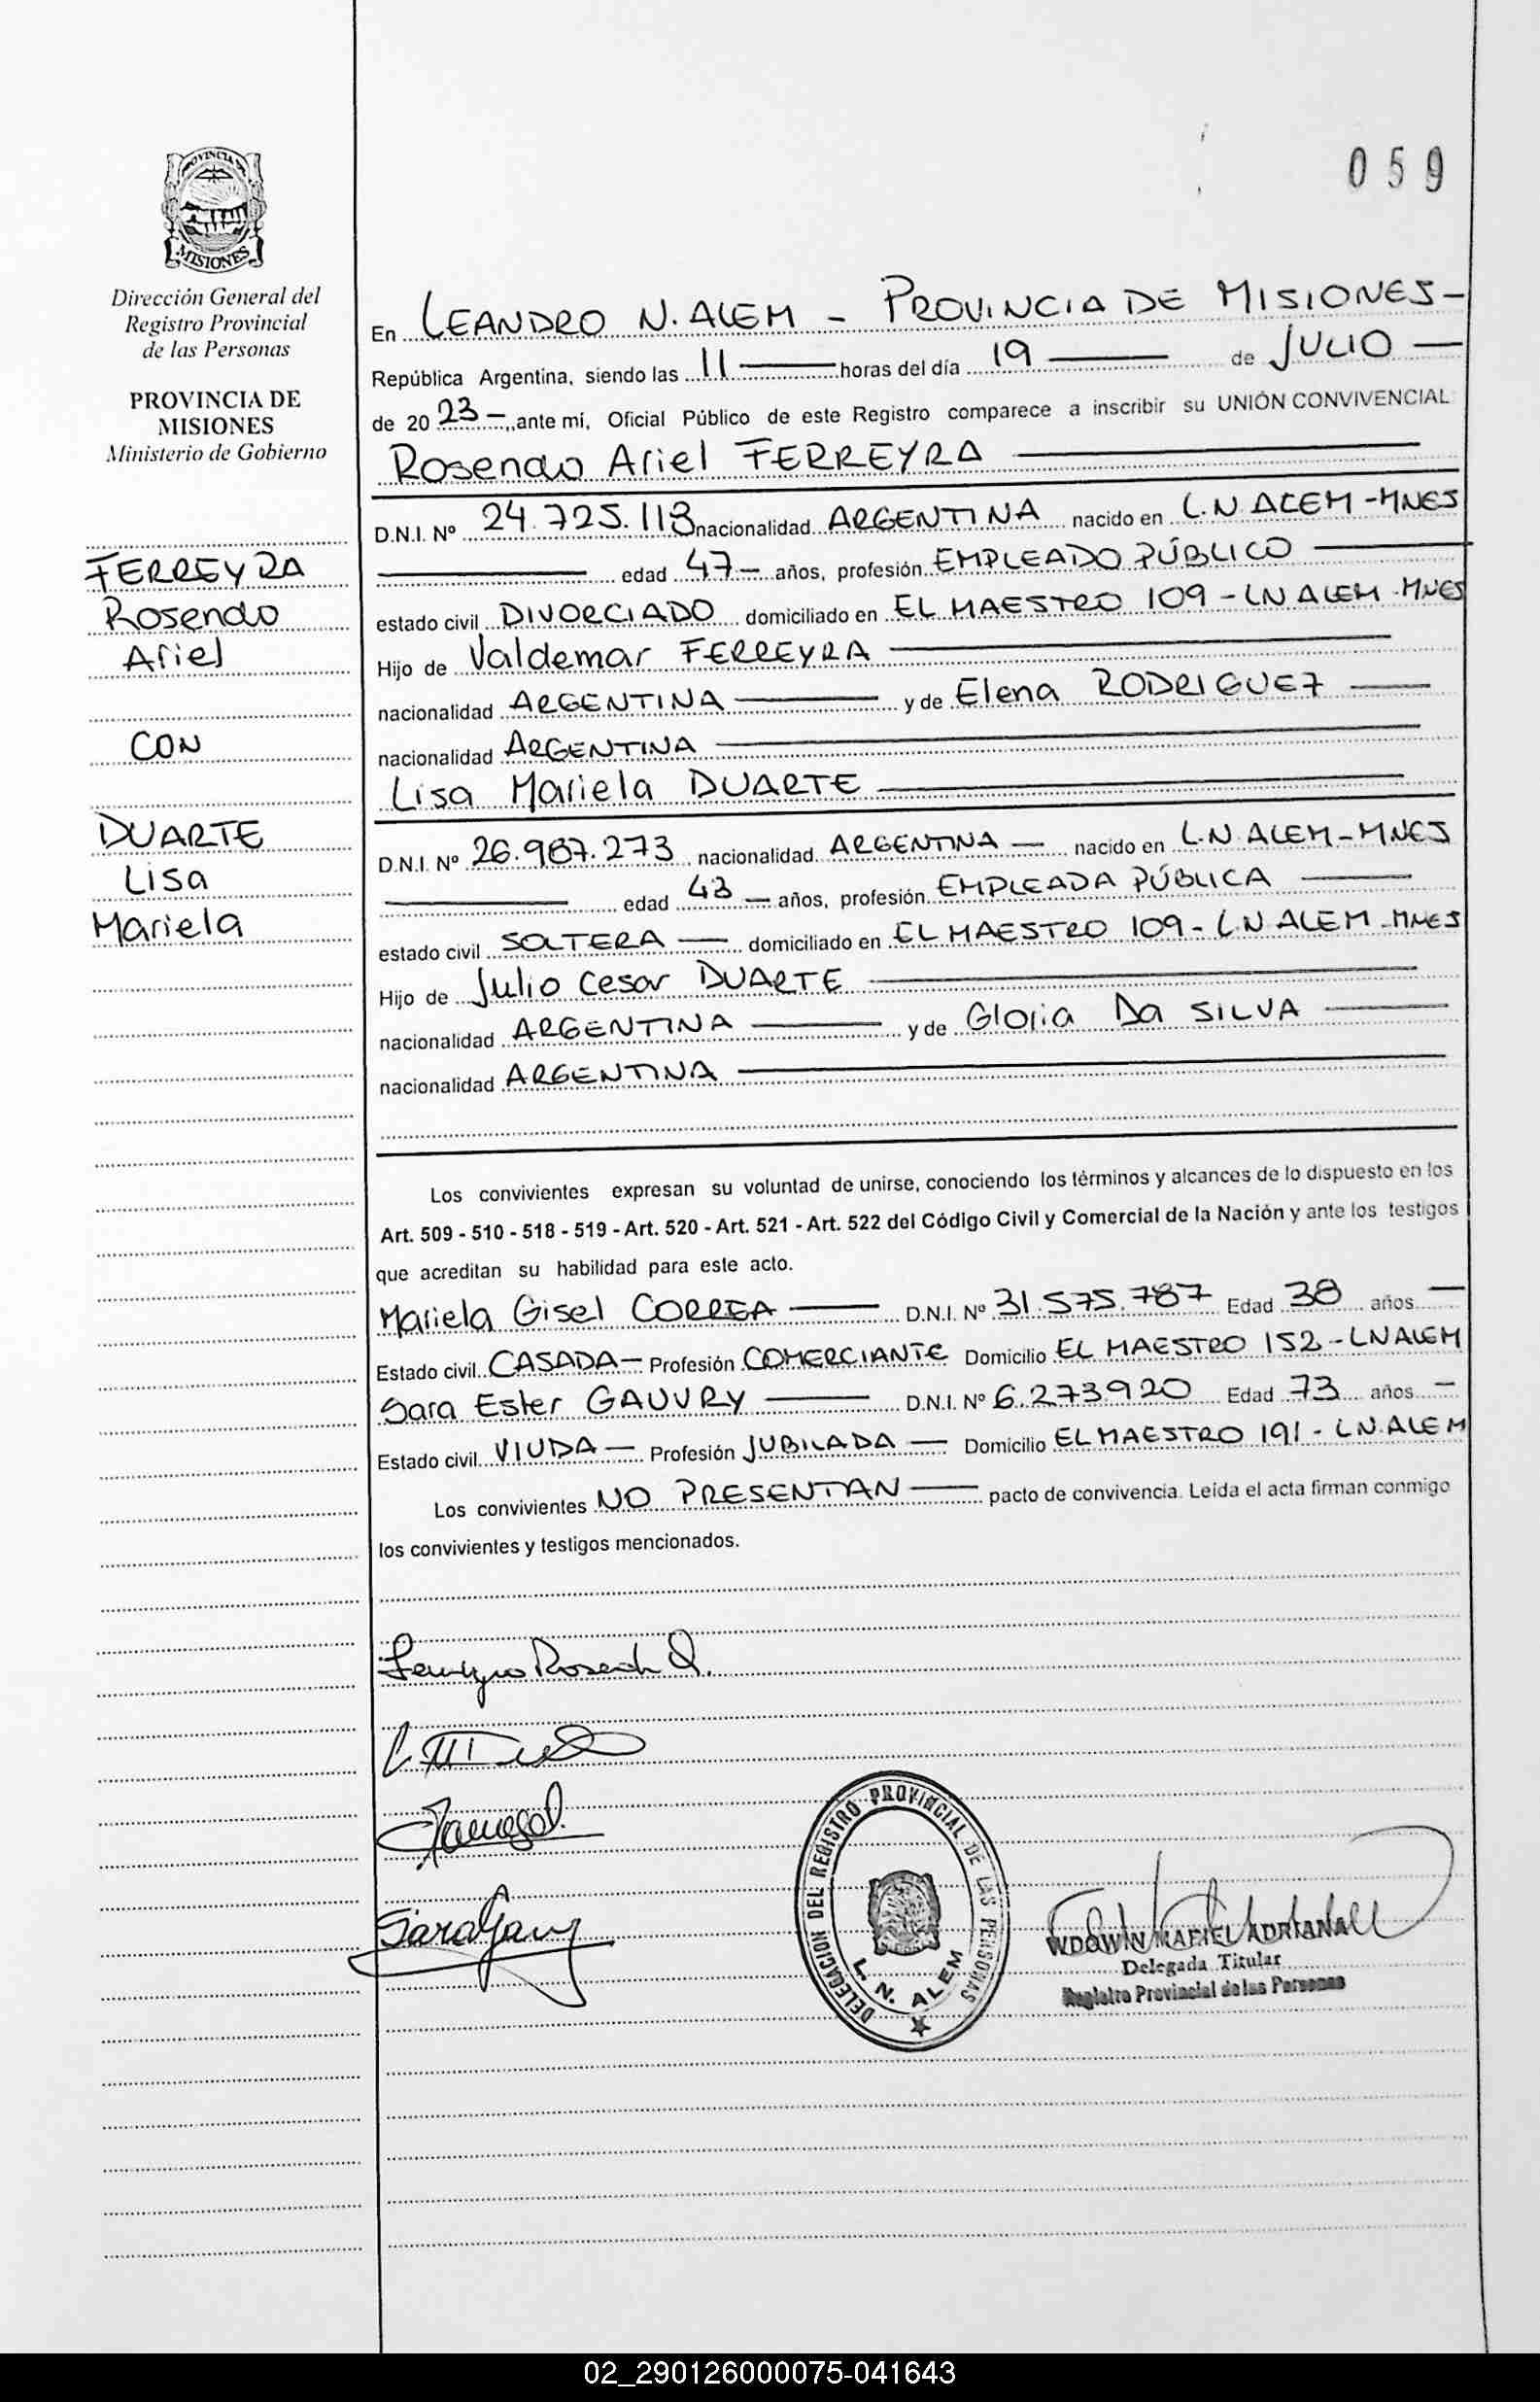 059
PROVINCIA DE
MISIONES
Dirección General del
Registro Provincial
de las Personas
PROVINCIA DE
MISIONES
Ministerio de Gobierno
FERREYRA
Rosendo
Ariel
CON
DUARTE
Lisa
Mariela
En LEANDRO N. ALEM - PROVINCIA DE MISIONES-
República Argentina, siendo las 11 horas del día 19 de JULIO
de 20 23 ,,ante mí, Oficial Público de este Registro comparece a inscribir su UNIÓN CONVIVENCIAL
Rosendo Ariel FERREYRA
D.N.I. Nº 24.725.113 nacionalidad ARGENTINA nacido en L.N ALEM-MNES
edad 47 años, profesión EMPLEADO PÚBLICO
estado civil DIVORCIADO domiciliado en EL MAESTRO 109 - LN ALEM-MNES
Hijo de Valdemar FERREYRA
nacionalidad ARGENTINA y de Elena RODRIGUEZ
nacionalidad ARGENTINA
Lisa Mariela DUARTE
D.N.I. Nº 26.987.273 nacionalidad ARGENTINA nacido en L.N ALEM-MNES
edad 43 años, profesión EMPLEADA PÚBLICA
estado civil SOLTERA domiciliado en EL MAESTRO 109- L N ALEM-MNES
Hijo de Julio Cesar DUARTE
nacionalidad ARGENTINA y de Gloria Da SILVA
nacionalidad ARGENTINA
Los convivientes expresan su voluntad de unirse, conociendo los términos y alcances de lo dispuesto en los
Art. 509 - 510 - 518 - 519 - Art. 520 - Art. 521 - Art. 522 del Código Civil y Comercial de la Nación y ante los testigos
que acreditan su habilidad para este acto.
Mariela Gisel CORREA D.N.I. Nº 31.575.787 Edad 38 años
Estado civil CASADA Profesión COMERCIANTE Domicilio EL MAESTRO 152 - LN ALEM
Sara Ester GAUVRY D.N.I. Nº 6.273920 Edad 73 años
Estado civil VIUDA Profesión JUBILADA Domicilio EL MAESTRO 191 - L N. ALEM
Los convivientes NO PRESENTAN pacto de convivencia. Leída el acta firman conmigo
los convivientes y testigos mencionados.
DELEGACION DEL REGISTRO PROVINCIAL DE LAS PERSONAS
L. N. ALEM
Delegada Titular
Registro Provincial de las Personas
02_290126000075-041643